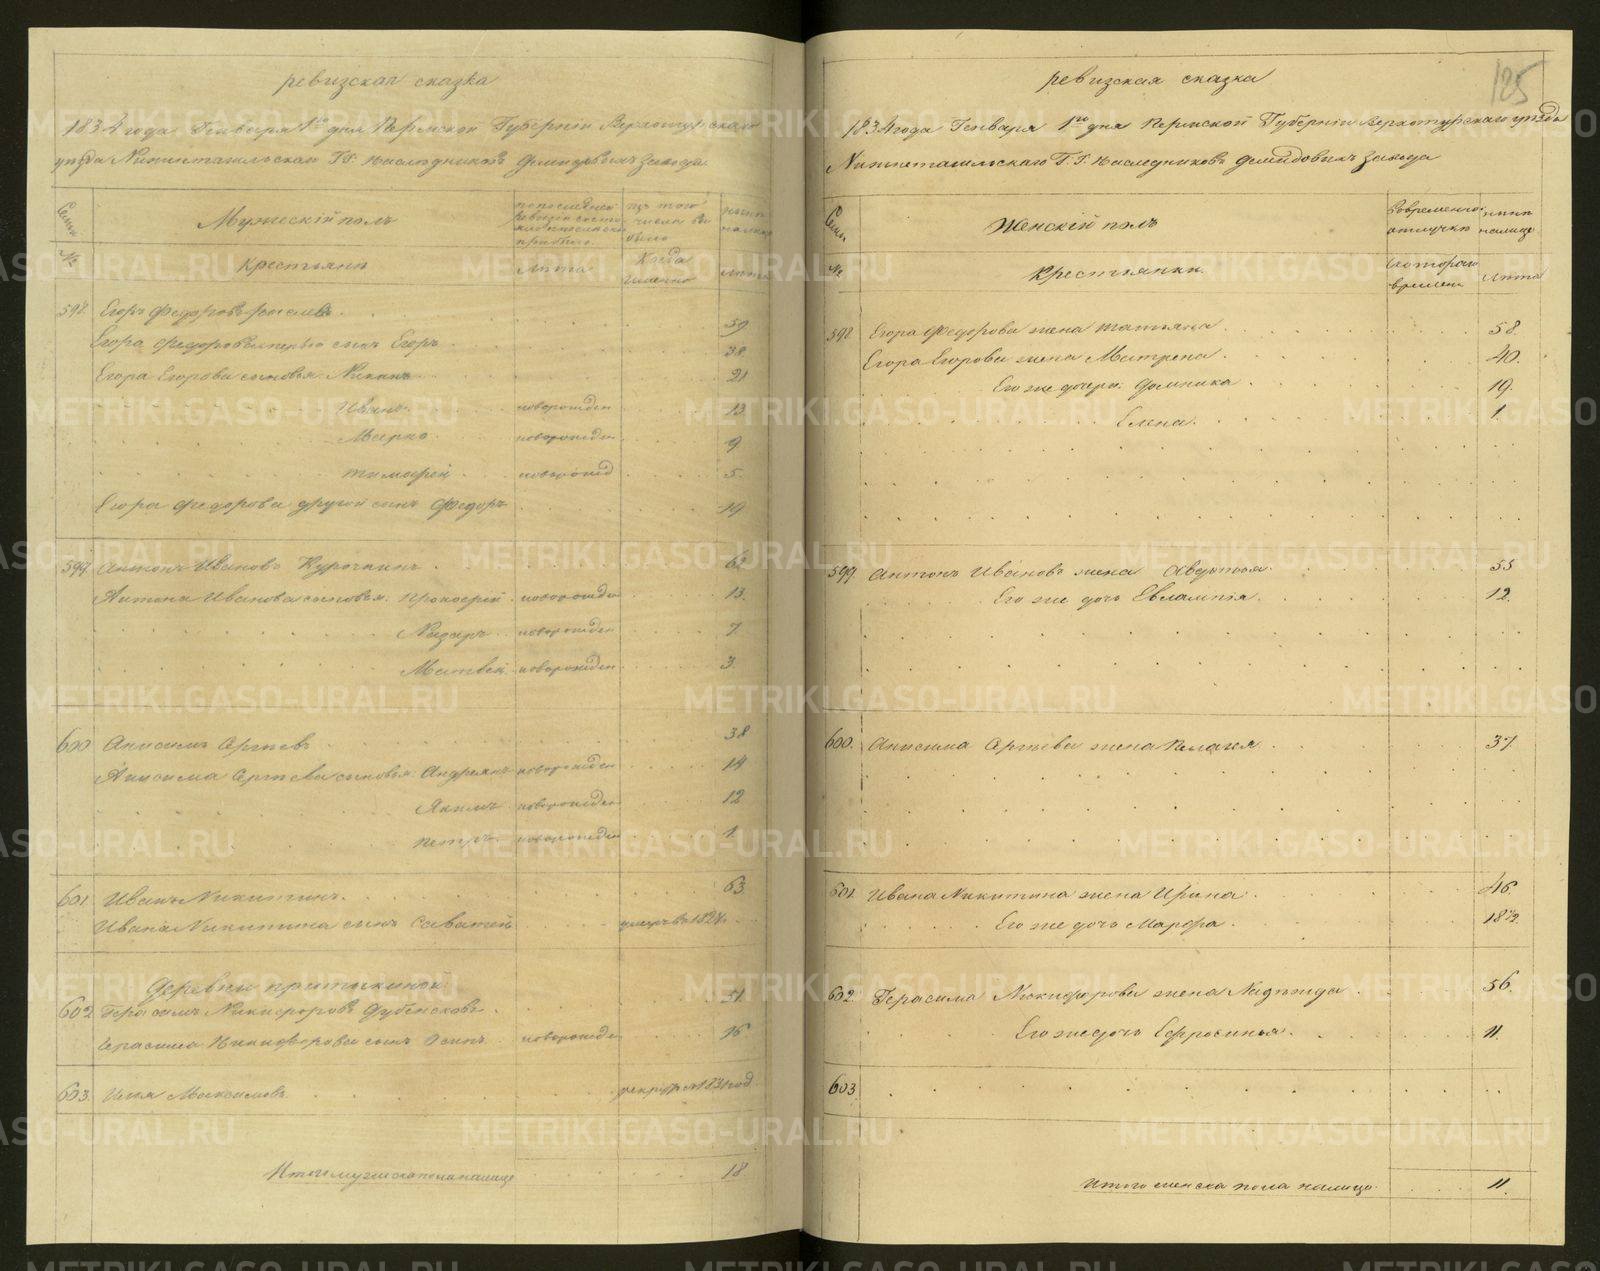 ревизская сказка
1834 года Генваря 1го дня Пермской Губернiи Верхотурскаго
уѣзда Нижнетагильскаго Г.Г. Наследниковъ Демидовыхъ завода
Семьи
Мужескiй полъ
по последней ревизiи состояло и после того прибыло
изъ того числа выбыло
нынѣ налицо
№
Крестьяне
лѣта
Когда именно
лѣта
598. Егоръ Федоровъ
59
Егора Федорова сынъ Егоръ 38
Егора Егорова сыновья 21
Иванъ новорожден 13
Марко новорожден 9
Тимофей новорожд 5
Егора Федорова другой сынъ Федоръ 19
599 Антонъ Ивановъ Курочкинъ 62
Антона Иванова сыновья Прокофей новорожден 13
Назаръ новорожден 7
Матвей новорожден 3
600 Анисимъ Сергѣевъ 38
Анисима Сергѣева сыновья Андреянъ новорожден 14
Якимъ новорожден 12
Петръ новорожден 1
601 Иванъ Никитинъ 63
Ивана Никитина сынъ Саватей
Деревни
602 Герасимъ Никифоровъ Дубенсковъ 51
Герасима Никифорова сынъ Осипъ новорожден 16
603. Илья Максимовъ
Итого мужеска пола налицо 18
125
ревизская сказка
1834 года Генваря 1го дня Пермской Губернiи Верхотурскаго уѣзда
Нижнетагильскаго Г.Г. Наследниковъ Демидовыхъ завода
Семьи
Женскiй полъ
Во временной отлучке
нынѣ налицо
№
Крестьянки
Съ котораго времени
лѣта
598 Егора Федорова жена Татьяна 58.
Егора Егорова жена Матрена 40.
Его же дочери Домника 19.
Елена 1.
599 Антона Иванова жена Авдотья 55
Его же дочь Евлампiя 12.
600. Анисима Сергѣева жена Пелагея 37.
601. Ивана Никитина жена Ирина 46.
Его же дочь Марфа 18½.
602. Герасима Никифорова жена Надежда 56.
Его же дочь Ефросинья 11.
603
Итого женска пола налицо 11.
METRIKI.GASO-URAL.RU